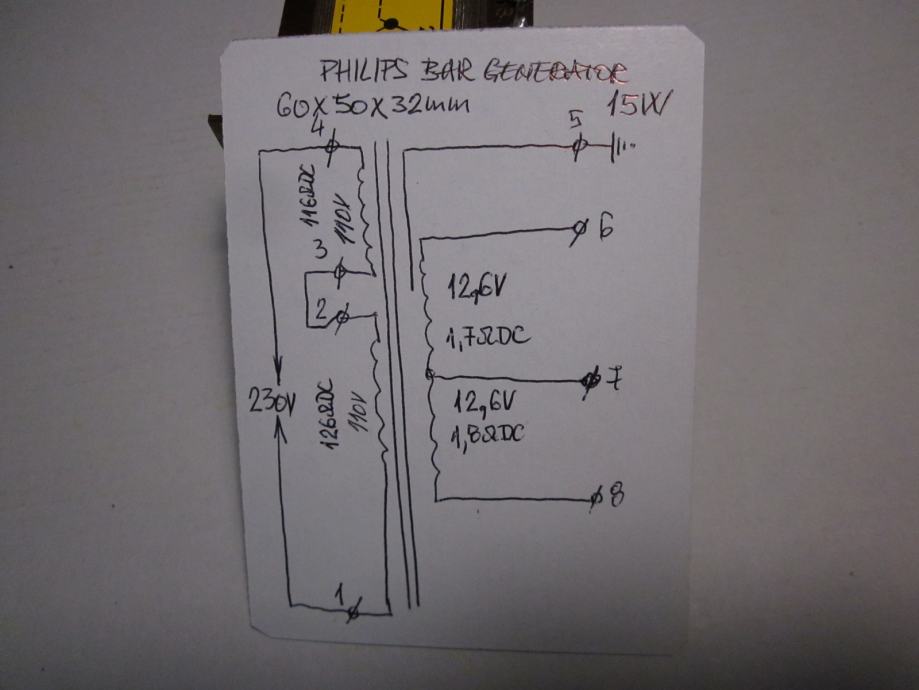 PHILIPS BAR GENERATOR
60X50X32mm 15W
4 5
116ΩDC
110V
6
3
12,6V
2
1,7ΩDC
7
230V
126ΩDC
110V
12,6V
1,8ΩDC
8
1